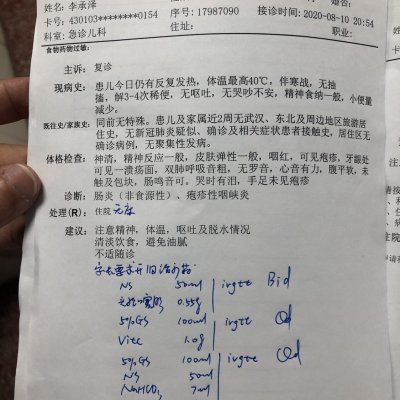 姓名：李承泽
卡号：430103********0154 序号：17987090 接诊时间：2020-08-10 20:54
科室：急诊儿科 住址： 职业：
食物药物过敏：
主诉： 复诊
现病史： 患儿今日仍有反复发热，体温最高40℃，伴寒战，无抽
搐，解3-4次稀便，无呕吐，无哭吵不安，精神食纳一般，小便量
减少。
既往史/家族史： 同前无特殊。患儿及家属近2周无武汉、东北及周边地区旅游居
住史，无新冠肺炎疑似、确诊及相关症状患者接触史，居住区无
确诊病例，无聚集性发病。
体格检查： 神清，精神反应一般，皮肤弹性一般，咽红，可见疱疹，牙龈处
可见一溃疡面，双肺呼吸音粗，无罗音，心音有力，腹平软，未
触及包块，肠鸣音可。哭时有泪，手足未见疱疹
诊断： 肠炎（非食源性）、疱疹性咽峡炎
处理(R)： 住院 无床
建议： 注意精神，体温，呕吐及脱水情况
清淡饮食，避免油腻
不适随诊
NS 50ml ivgtt Bid
0.55g
5%GS 100ml ivgtt Qd
Vitc 1.0g
5%GS 100ml ivgtt Qd
NS 50ml
NaHCO3 7ml